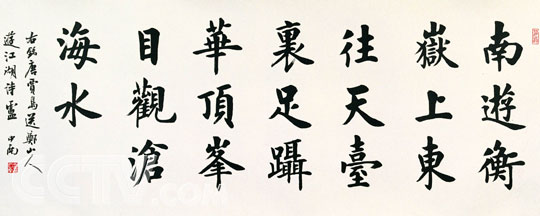 南遊衡
嶽上東
往天臺
裏足躡
華頂峯
目觀滄
海水
右錄唐賈島送鄭山人
遊江湖詩 盧中南
CCTV.com